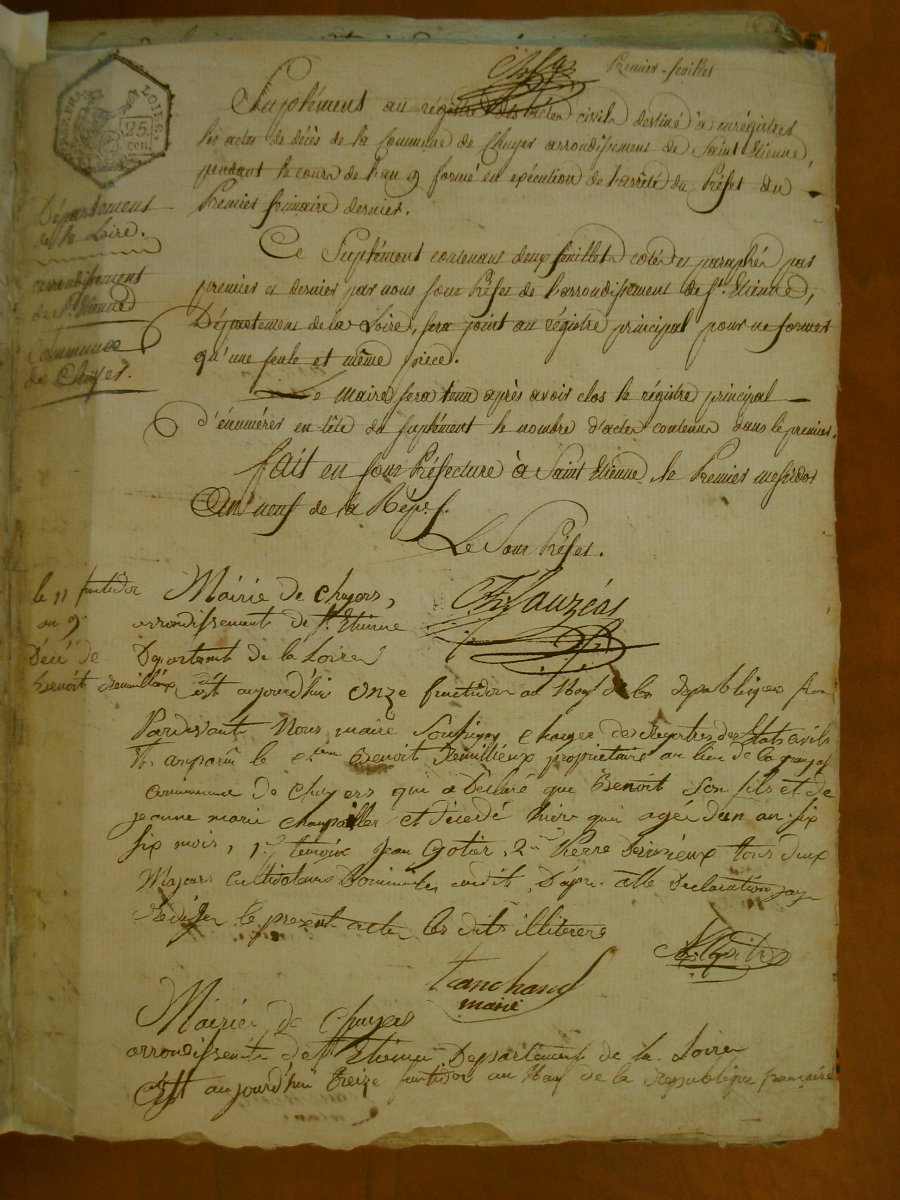 Premier feuillet
Suplément au régistre des actes civils destiné à enrégistrer
les actes de décès de la Commune de Chuyer arrondissement de Saint Etienne,
pendant le cours de l'an 9 formé en exécution de l'arrêté du Préfet du
Premier frimaire dernier.
LOIRE.
25
cen.
Département
de la Loire.
arrondissement
de St. Etienne
Commune
de Chuyer.
Ce Suplément contenant deux feuillets cotés et paraphés par
premier et dernier par nous sous Préfet de l'arrondissement de St. Etienne,
Département de la Loire, sera joint au régistre principal pour ne former
qu'une seule et même pièce.
Le maire sera tenu après avoir clos le régistre principal
d'énumérer en tête du suplément le nombre d'actes contenus dans le premier.
fait en sous Préfecture à Saint Etienne, le Premier messidor
An neuf de la Rép.
Le Sous Préfet.
Sauzéas
le 11 fructidor
an 9
Décé de
benoit
Mairie de chuyers,
arrondissement de St. Etienne
Departemt de la Loire
est aujourdhui onze fructidor an Neuf de la republique fran
Pardevant Nous maire Soussigné charger des Registres des Etats Civils
est comparû le benoit proprietaire au lieu de la
commune de Chuyers qui a Declaré que Benoit Son fils et de
jeanne marie et décedé hier agé d'un an six
six mois, 1er temoin jean 2me Pierre tous deux
Majeurs cultivateurs Domiciliés audit, D'apres Declaration jay
Rediger le present acte les dits illiterés
tranchand
maire
Mairie de Chuyers
arrondissemt de St Etienne Departement de la Loire
C'Est aujourd'hui treize fructidor an Neuf de la republique française